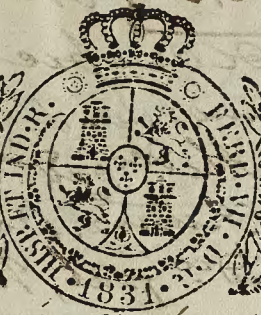 FERD·VII·D·G·
HISP·ET IND·R·
·1831·